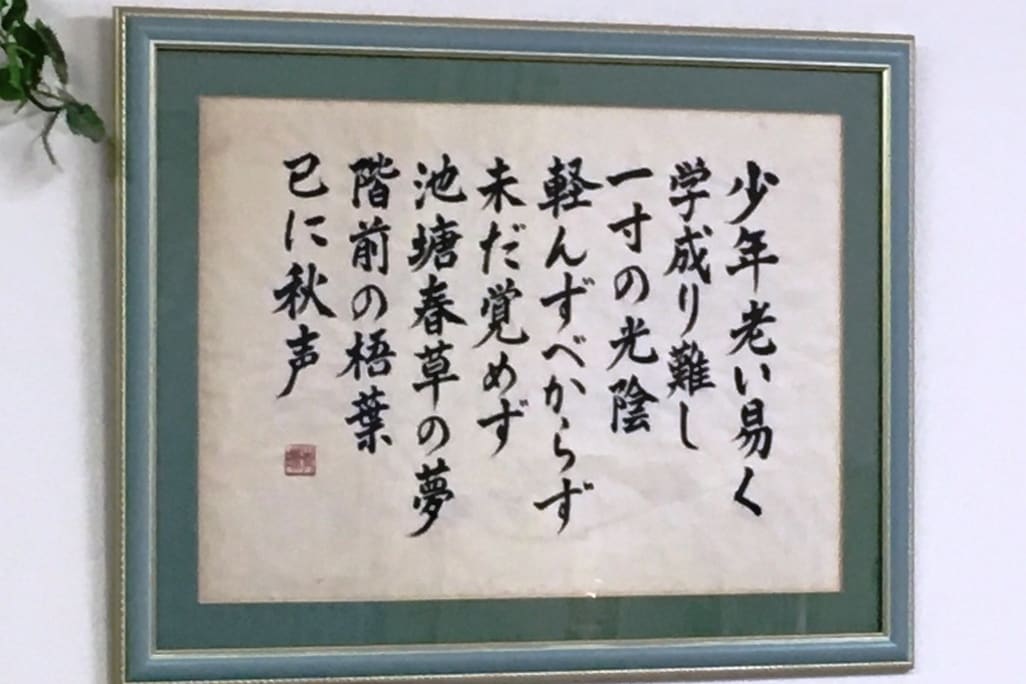 少年老い易く
学成り難し
一寸の光陰
軽んずべからず
未だ覚めず
池塘春草の夢
階前の梧葉
已に秋声